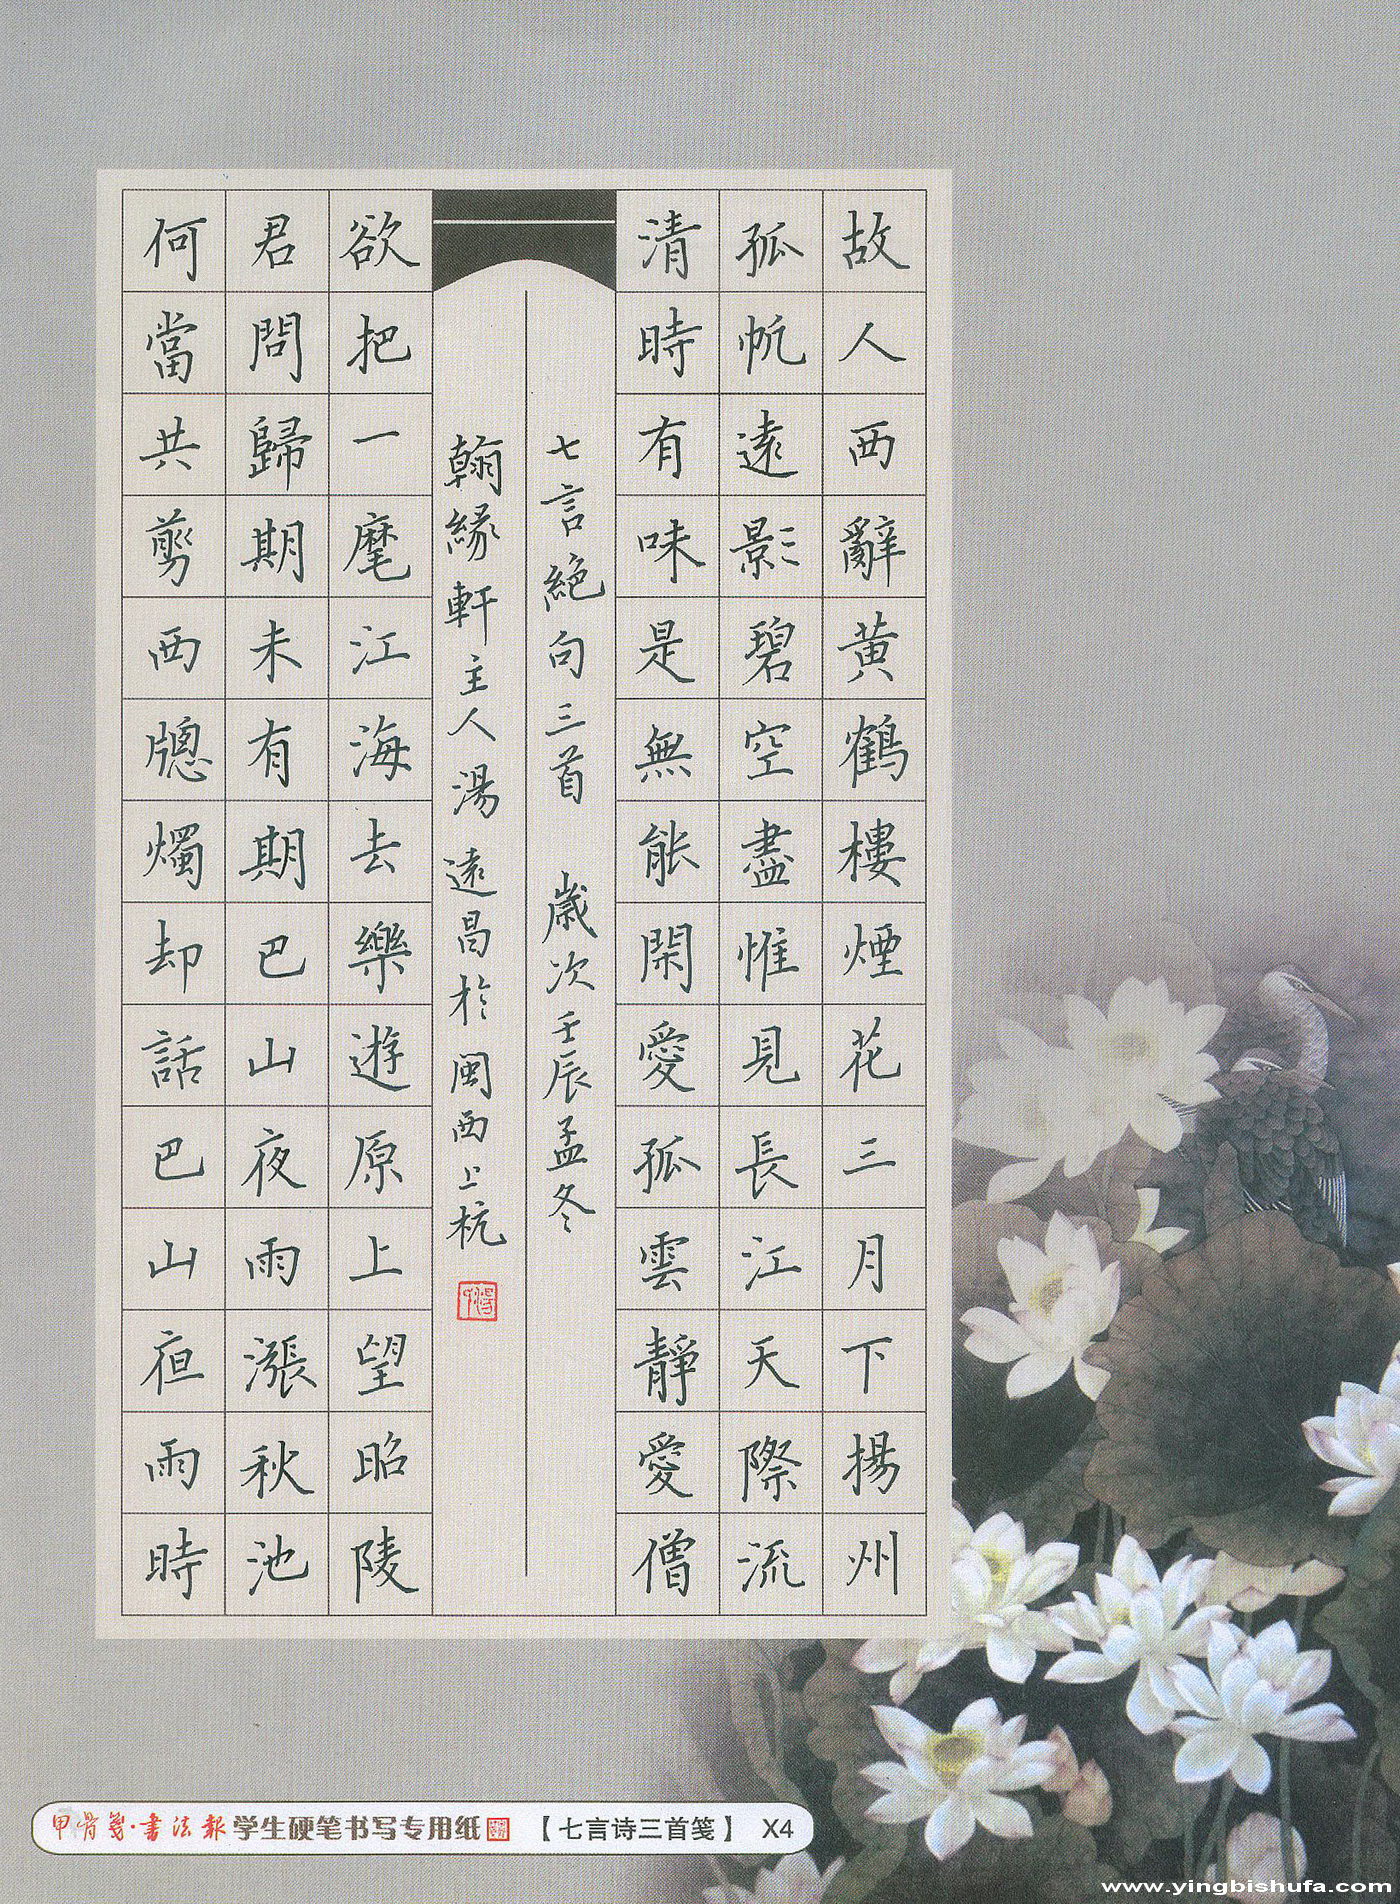 故人西辭黃鶴樓煙花三月下揚州
孤帆遠影碧空盡惟見長江天際流
清時有味是無能閑愛孤雲靜愛僧
七言絕句三首 歲次壬辰孟冬
翰緣軒主人湯遠昌於閩西上杭
欲把一麾江海去樂遊原上望昭陵
君問歸期未有期巴山夜雨漲秋池
何當共剪西牕燭却話巴山夜雨時
甲骨箋·書法報学生硬笔书写专用纸【七言诗三首笺】 X4
www.yingbishufa.com